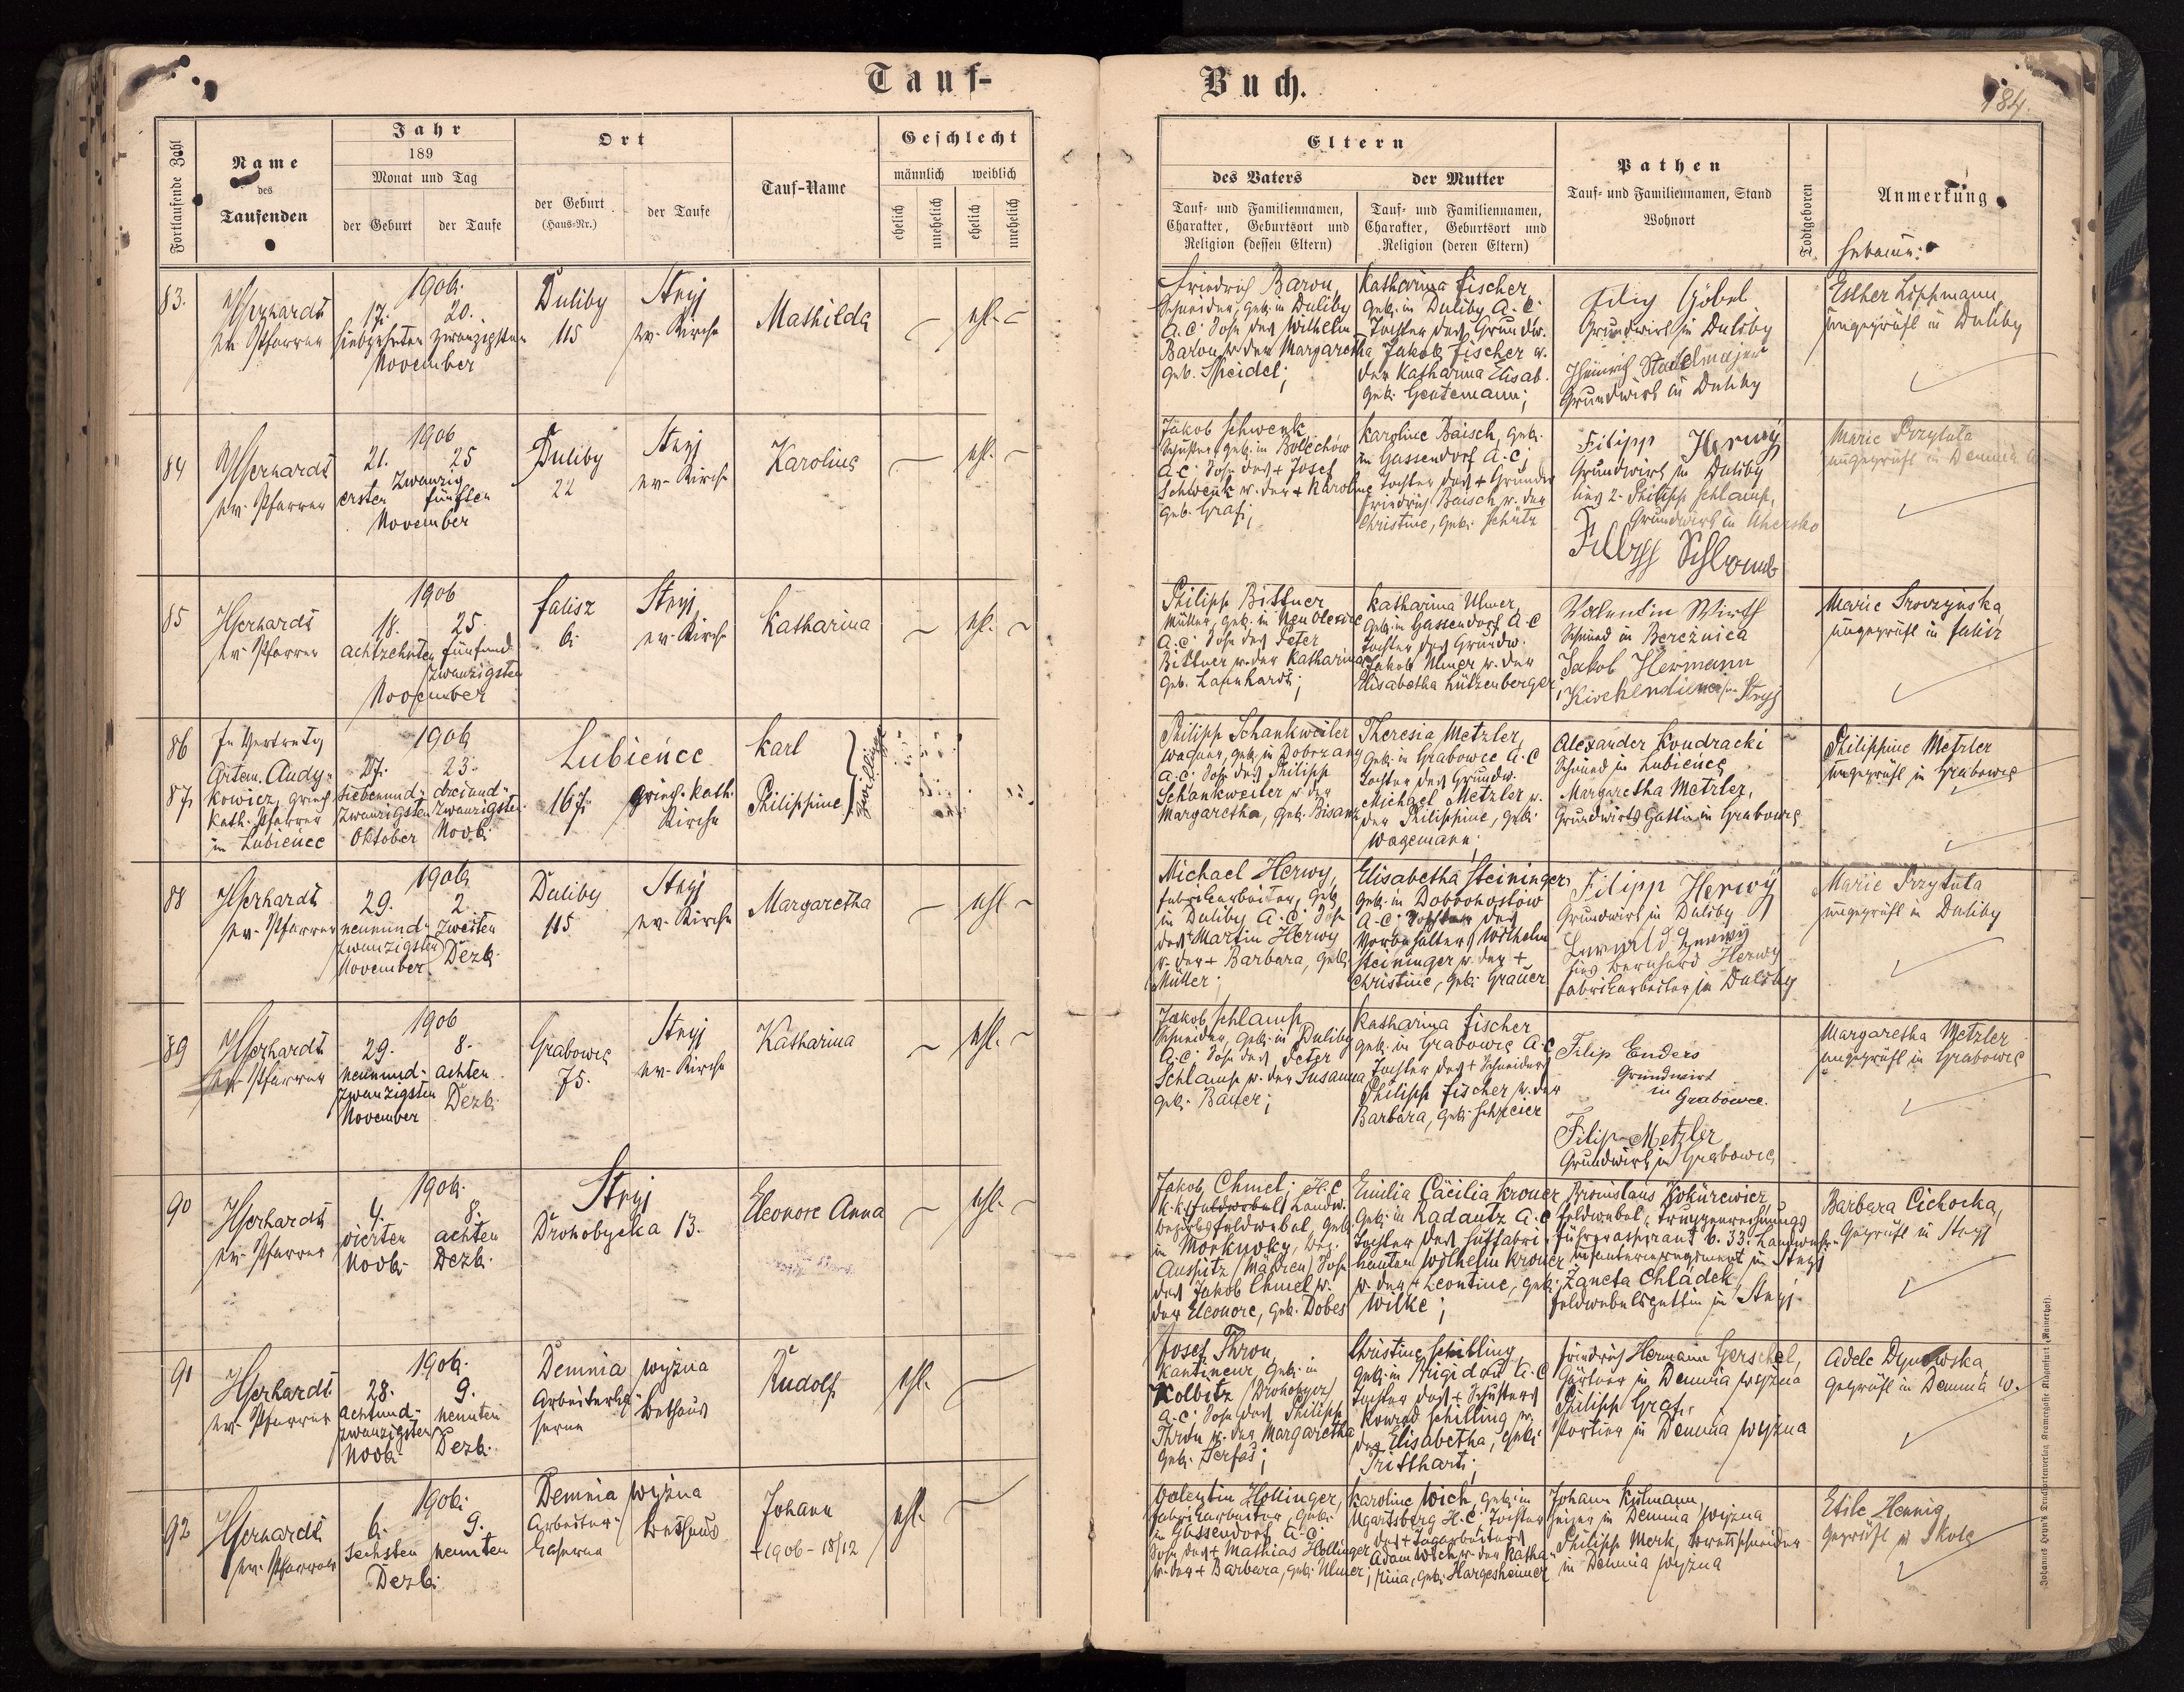 Tauf-
Buch.
184.
Fortlaufende Zahl
Name
des
Taufenden
Jahr
189
Monat und Tag
der Geburt
der Taufe
Ort
der Geburt
(Haus-Nr.)
der Taufe
Tauf-Name
Geschlecht
männlich
weiblich
ehelich
unehelich
ehelich
unehelich
Eltern
des Vaters
der Mutter
Tauf- und Familiennamen,
Charakter, Geburtsort und
Religion (dessen Eltern)
Tauf- und Familiennamen,
Charakter, Geburtsort und
Religion (deren Eltern)
Pathen
Tauf- und Familiennamen, Stand
Wohnort
Todtgeboren
Anmerkung
Hebamme:
83.
ev. Pfarrer
1906.
17. 20.
siebzehnten zwanzigsten
November
Duliby
115
Stryj
ev. Kirche
Mathilda
ehl.
Friedrich Baron,
Schneider, geb. in Duliby
A.C. Sohn des Wilhelm
Baron u. der Margaretha
geb. Speidel;
Katharina Fischer,
geb. in Duliby A.C.
Tochter des Grundw.
Jakob Fischer u.
der Katharina Elisab.
geb. Gentemann;
Filip Göbel
Grundwirt in Duliby
Heinrich Stadelmajer
Grundwirt in Duliby
Esther Lippmann,
ungeprüft in Duliby
84
ev. Pfarrer
1906
21. 25
Zwanzig
ersten fünften
November
Duliby
22
Stryj
ev. Kirche
Karoline
ehl.
Jakob Schwenk,
Schuster, geb. in Bolechów
A.C. Sohn des + Josef
Schwenk u. der + Karoline
geb. Graf;
Karoline Baisch, geb.
in Gassendorf A.C.;
Tochter des + Grundw.
Friedrich Baisch u. der
Christine, geb. Schütz
Filipp Herwÿ
Grundwirt in Duliby
Philipp Schlamp,
Grundwirt in
Marie Przytuła
ungeprüft in
85
ev. Pfarrer
1906
18. 25.
achtzehnten fünfund
zwanzigsten
November
Falisz
6.
Stryj
ev. Kirche
Katharina
ehl.
Philipp Bittner
Müller, geb. in
A.C. Sohn des Peter
Bittner u. der Katharina
geb. Lannhardt;
Katharina Ulmer,
geb. in Gassendorf A.C
Tochter des Grundw.
Jakob Ulmer u. der
Elisabetha Lützenberger
Valentin Wirth
Schmied in Bereźnica
Jakob Hermann
Kirchendiener in Stryj
Marie
ungeprüft in Falisz
86
87.
In Vertretg
Artem. Andy-
kowicz, griech.
kath. Pfarrer
in Lubieńce
1906
27. 23.
siebenund- dreiund-
zwanzigsten zwanzigsten
Oktober Novb.
Lubieńce
167. griech. kath.
Kirche
Karl
Philippine
Zwillinge
Philipp Schankweiler
Wagner, geb. in
A.C. Sohn des Philipp
Schankweiler u. der
Margaretha, geb. Bisanz
Theresia Metzler,
geb. in Grabowce A.C
Tochter des Grundw.
Michael Metzler u.
der Philippine, geb.
Wagemann;
Alexander Kondracki
Schmied in Lubieńce
Margaretha Metzler,
Grundwirts Gattin in Grabowce
Philippine Metzler
ungeprüft in Grabowce
88
Gerhardt
ev. Pfarrer
1906
29. 2.
neunund- zweiten
zwanzigsten Dezb.
November
Duliby
115
Stryj
ev. Kirche
Margaretha
ehl.
Michael Herwy,
Fabrikarbeiter, geb.
in Duliby A.C. Sohn
des Martin Herwy
u. der + Barbara, geb.
Müller;
Elisabetha Steininger
geb. in Dobrohostów
A.C. Tochter des
Vorbehalters Wilhelm
Steininger u. der +
Christine, geb. Grauer
Filipp Herwÿ
Grundwirt in Duliby
Bernhard Herwy
Fabrikarbeiter in Duliby
Marie Przytuła
ungeprüft in Duliby
89
Gerhardt
ev. Pfarrer
1906
29. 8.
neunund- achten
zwanzigsten Dezb.
November
Grabowce
75.
Stryj
ev. Kirche
Katharina
ehl.
Jakob Schlamp
Schneider, geb. in Duliby
A.C. Sohn des Peter
Schlamp u. der Susanna
geb. Bauer;
Katharina Fischer
geb. in Grabowce A.C
Tochter des + Schneiders
Philipp Fischer u. der
Barbara, geb. Schreier
Filip Enders
Grundwirt
in Grabowce.
Filip Metzler
Grundwirt in Grabowce
Margaretha Metzler
ungeprüft in Grabowce
90
Gerhardt
ev. Pfarrer
1906.
4. 8.
vierten achten
Novb. Dezb.
Stryj
Drohobycka 13.
Eleonore Anna
ehl.
Jakob Chmel; H.C
k.k. Landw.
Bezirksfeldwebel, geb.
in Bez.
Auspitz (Mähren) Sohn
des Jakob Chmel u.
der Eleonore, geb. Dobes
Emilia Cäcilia Kroner
geb. in Radautz A.C
Tochter des Hutfabri-
kanten Wilhelm Kroner
u. der + Leontine, geb.
Wilke;
Bronislaus
Feldwebel, Truppenrechnungs
führeraspirant b. 33. Landwehr-
infanterieregiment in Stryj
Żaneta Chladek
Feldwebelsgattin in Stryj.
Barbara Cichocka,
geprüft in Stryj
91
Gerhardt
ev. Pfarrer
1906.
28. 9.
achtund- neunten
zwanzigsten
Novb. Dezb.
Demnia wyżna
Arbeiterka- Bethaus
serne
Rudolf
ehl.
Josef Thron,
Kantineur, geb. in
Kolbitz (Drohobycz)
A.C. Sohn des Philipp
Thron u. der Margaretha
geb. Serfas;
Christine Schilling
geb. in Brigidau A.C
Tochter des + Schusters
Konrad Schilling u.
der Elisabetha, geb.
Tritthart;
Friedrich Hermann Gerschel,
Gärtner in Demnia wyżna
Philipp Graf,
Portier in Demnia wyżna
Adele Dynowska
geprüft in Demnia w.
92
Gerhardt
ev. Pfarrer
1906.
6. 9.
sechsten neunten
Dezb.
Demnia wyżna
Arbeiter- Bethaus
kaserne
Johann
+ 1906 - 18/12
ehl.
Valentin Hollinger,
Fabrikarbeiter, geb.
in Gassendorf A.C.
Sohn des + Mathias Hollinger
u. der + Barbara, geb. Ulmer;
Karoline Wich, geb. in
Ugartsberg H.C. Tochter
des + Tagarbeiters
Adam Wich u. der Katha-
rina, geb. Hargesheimer
Johann Kulmann,
Heizer in Demnia wyżna
Philipp Merk, Brettschneider
in Demnia wyżna
Etile Hennig
geprüft in Skole
Johannes Heyn's Drucksortenverlag Kramergasse Klagenfurt (Mainerhof).